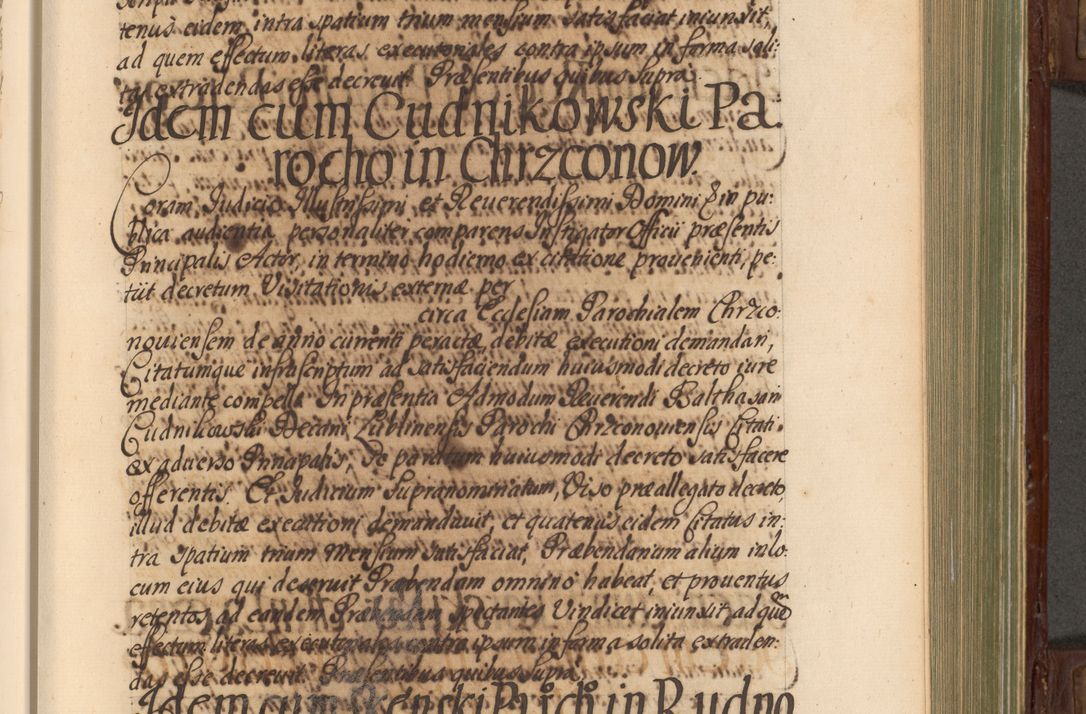 tenus eidem intra spatium trium mensium satisfaciat iniunxit,
ad quem effectum literas executoriales contra ipsum in forma soli-
ta extradendas esse decreuit. Præsentibus quibus supra.
Idem cum Cudnikowski Pa:
rocho in Chrzconow.
Coram Iudicio Illustrissimi et Reuerendissimi Domini in pu:
blica audientia personaliter comparens Instigator Officii præsentis
Principalis Actor, in termino hodierno ex citatione prouenienti, pe:
tiit decretum Visitationis externæ per
circa Ecclesiam Parochialem Chrzco:
nouiensem de anno currenti peractæ, debitæ executioni demandari,
Citatumque infrascriptum ad satisfaciendum huiusmodi decreto iure
mediante compelli. In præsentia Admodum Reuerendi Balthasari
Cudnikowski Decani Lublinensis Parochi Chrzconowiensis Citati
ex aduerso Principalis, se paratum huiusmodi decreto satisfacere
offerentis. Et Iudicium supranominatum, Viso præallegato decreto,
illud debitæ executioni demandauit, et quatenus eidem Citatus in:
tra spatium trium mensium satisfaciat, Præbendarium alium in lo:
cum eius qui deseruit Præbendam omnino habeat, et prouentus
retentos ad eandem Præbendam spectantes Vindicet iniunxit, ad quem
effectum literas executoriales contra ipsum in forma solita extraden:
das esse decreuit. Præsentibus quibus supra.
Idem cum Rudno